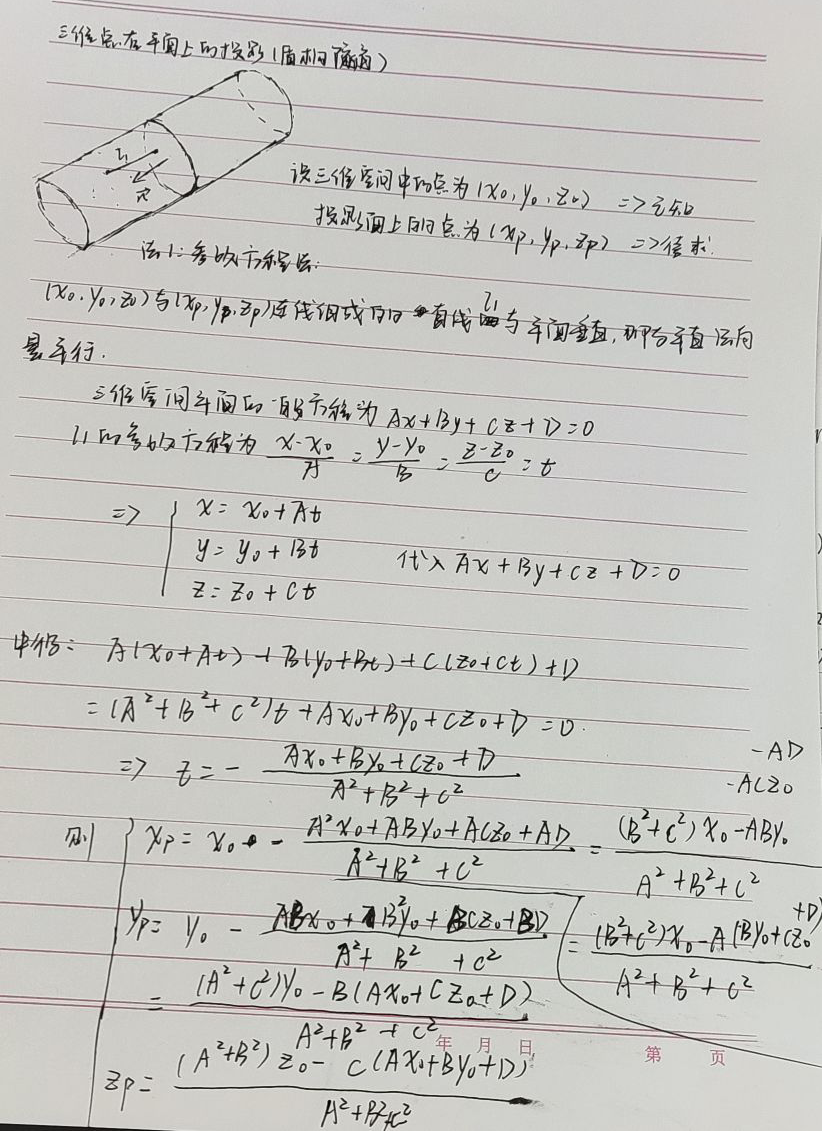 三维点在平面上的投影(盾构隧道)
l₁
n⃗
设三维空间中的点为(x₀, y₀, z₀) => 已知
投影面上的点为(xp, yp, zp) => 待求.
法1: 参数方程法:
(x₀, y₀, z₀)与(xp, yp, zp)连线组成的直线l₁与平面垂直,即与平面法向
量平行.
三维空间平面的一般方程为 Ax+By+Cz+D=0
l₁的参数方程为 (x-x₀)/A = (y-y₀)/B = (z-z₀)/C = t
=> { x = x₀ + At
y = y₀ + Bt 代入 Ax+By+Cz+D=0
z = z₀ + Ct
中得: A(x₀+At) + B(y₀+Bt) + C(z₀+Ct) + D
= (A²+B²+C²)t + Ax₀+By₀+Cz₀+D = 0.
=> t = - (Ax₀+By₀+Cz₀+D)/(A²+B²+C²)
-AD
-ACz₀
则 { xp = x₀ - (A²x₀+ABy₀+ACz₀+AD)/(A²+B²+C²) = ((B²+C²)x₀-ABy₀)/(A²+B²+C²)
= ((B²+C²)x₀-A(By₀+Cz₀+D))/(A²+B²+C²)
yp = y₀ - (ABx₀+B²y₀+BCz₀+BD)/(A²+B²+C²)
= ((A²+C²)y₀-B(Ax₀+Cz₀+D))/(A²+B²+C²)
年 月 日
第 页
zp = ((A²+B²)z₀-C(Ax₀+By₀+D))/(A²+B²+C²)